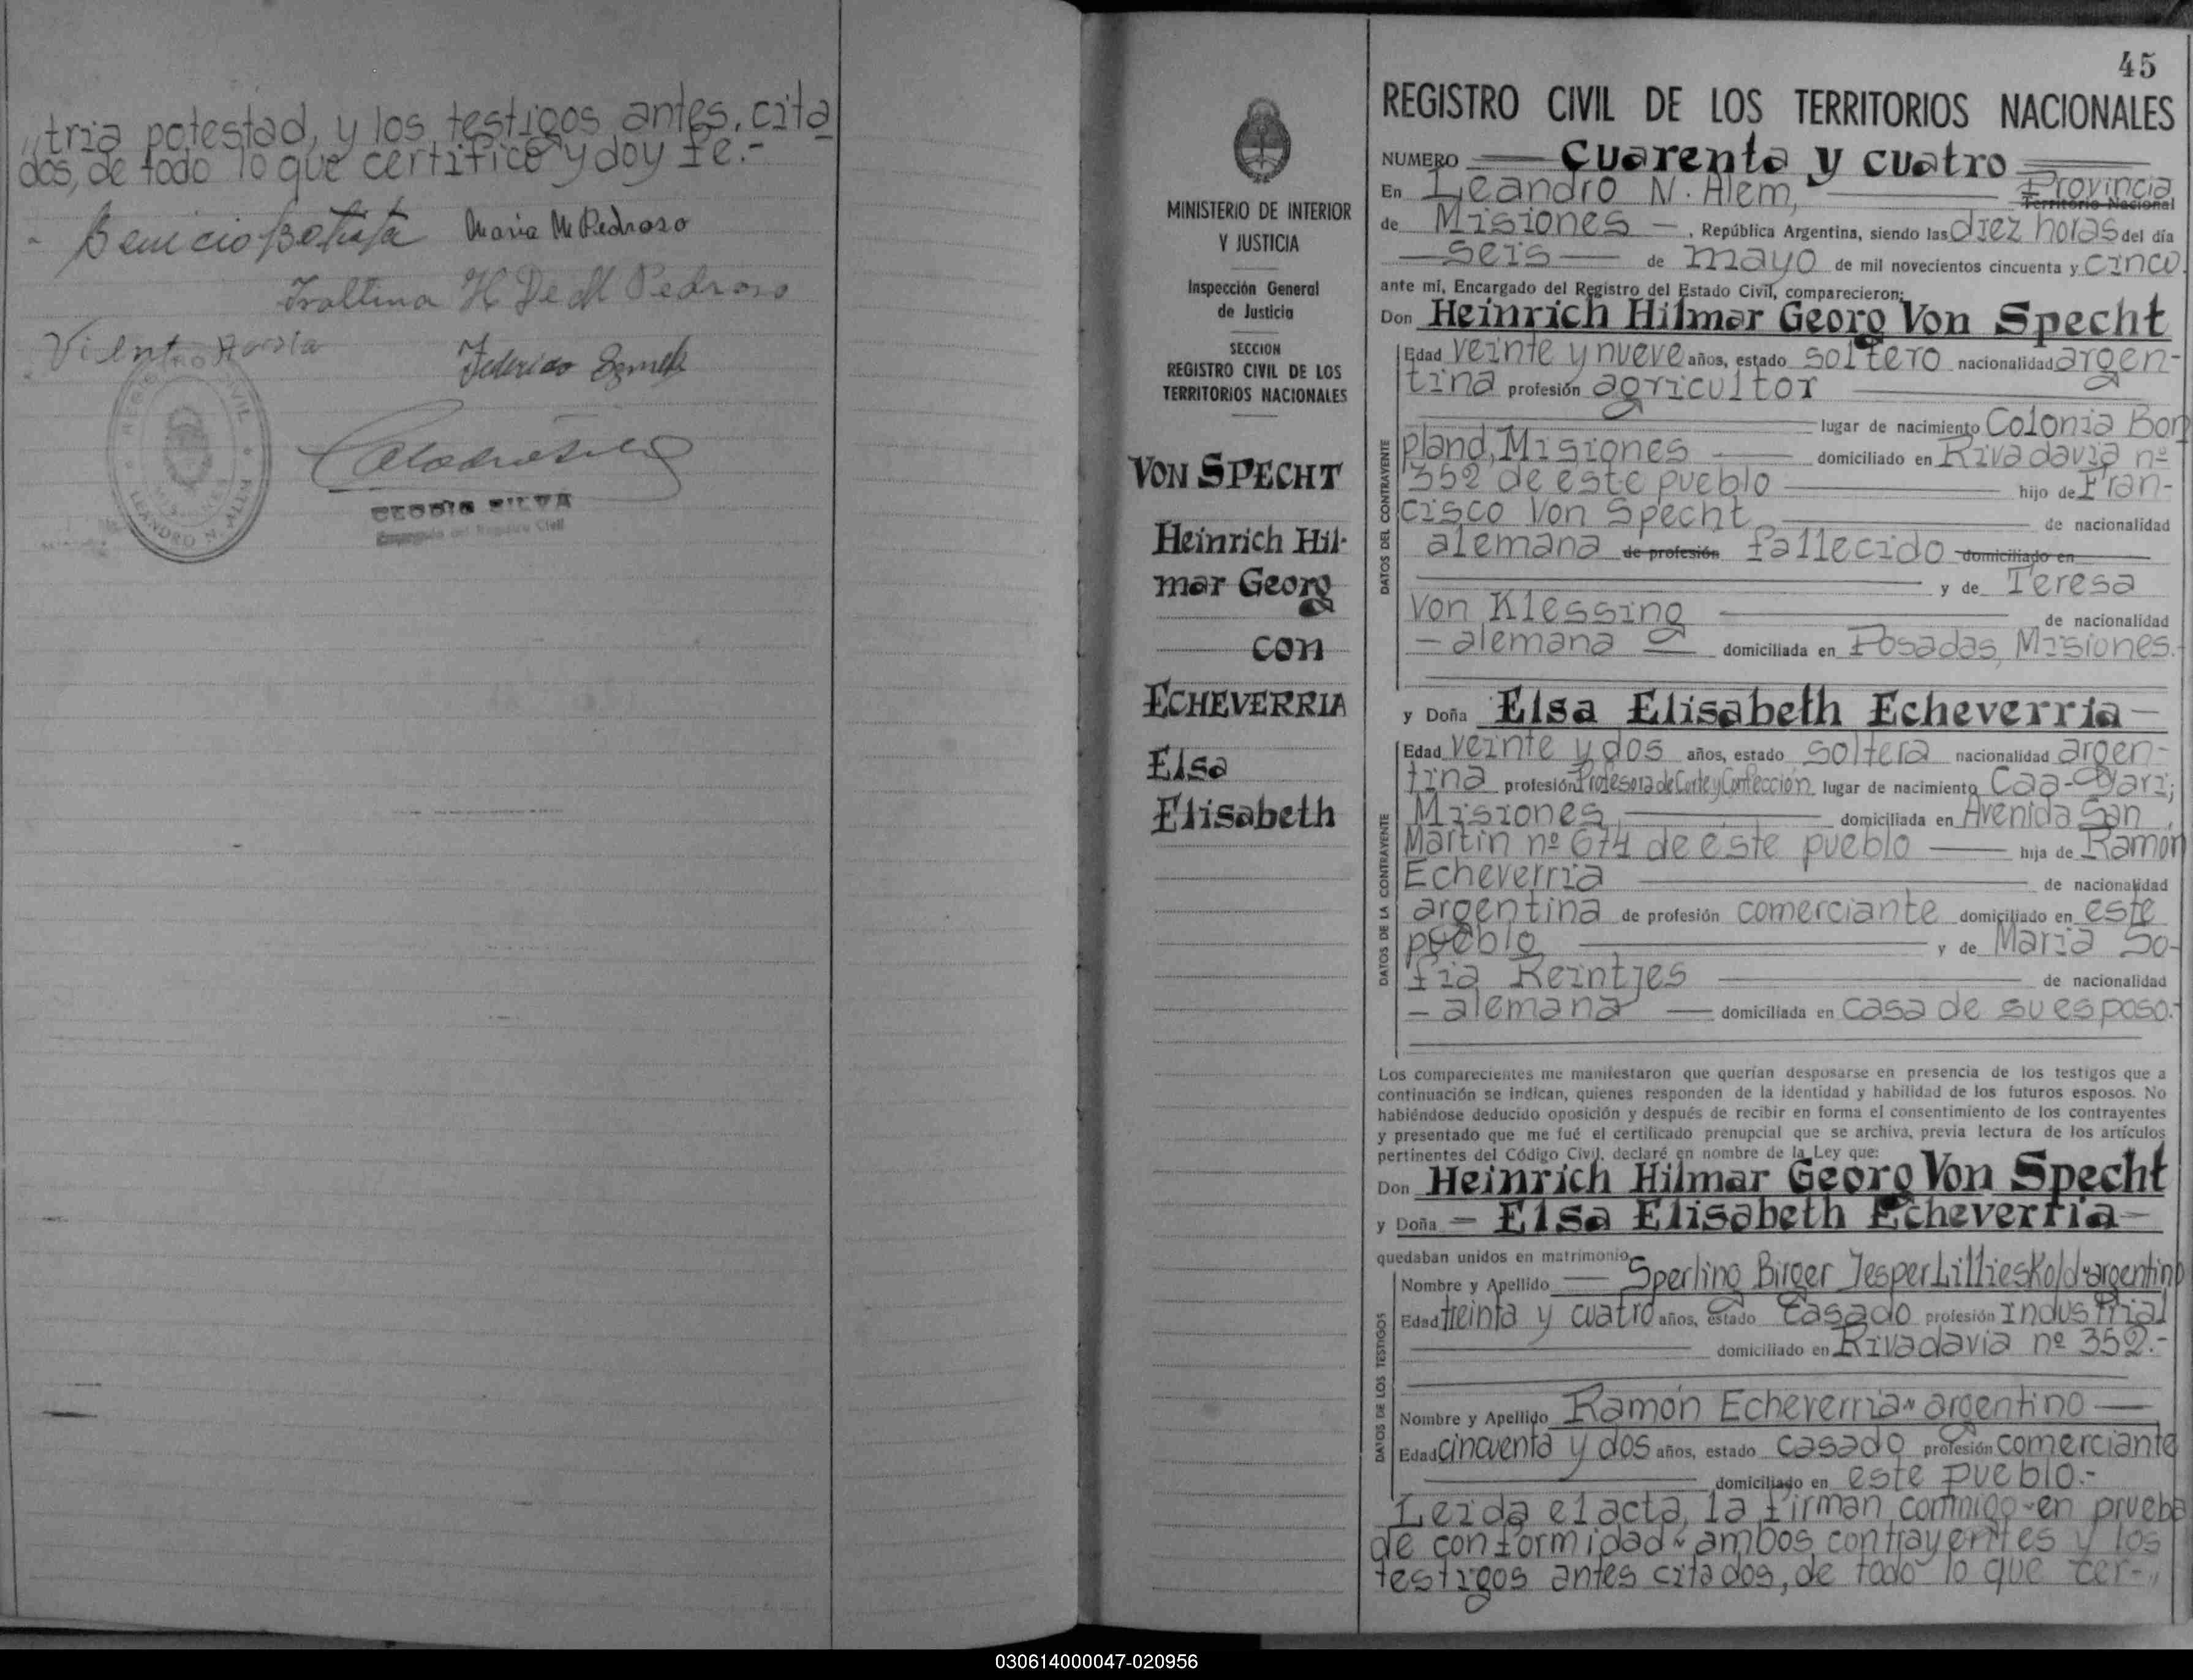 ,,tria potestad, y los testigos antes, cita
dos, de todo lo que certifico y doy fe.-
Benicio Batista Maria M Pedroso
H De M Pedroso
Federico
REGISTRO CIVIL
MISIONES
LEANDRO N. ALEM
SILVA
Encargado del Registro Civil
MINISTERIO DE INTERIOR
Y JUSTICIA
Inspección General
de Justicia
SECCION
REGISTRO CIVIL DE LOS
TERRITORIOS NACIONALES
VON SPECHT
Heinrich Hil-
mar Georg
con
ECHEVERRIA
Elsa
Elisabeth
45
REGISTRO CIVIL DE LOS TERRITORIOS NACIONALES
NUMERO Cuarenta y cuatro
En Leandro N. Alem, Provincia
Territorio Nacional
de Misiones —, República Argentina, siendo las diez horas del día
— seis — de mayo de mil novecientos cincuenta y cinco
ante mí, Encargado del Registro del Estado Civil, comparecieron:
Don Heinrich Hilmar Georg Von Specht
DATOS DEL CONTRAYENTE
Edad veinte y nueve años, estado soltero nacionalidad argen-
tina profesión agricultor
lugar de nacimiento Colonia Bon
pland, Misiones — domiciliado en Rivadavia nº
352 de este pueblo — hijo de Fran-
cisco Von Specht — de nacionalidad
alemana de profesión fallecido domiciliado en
y de Teresa
Von Klessing — de nacionalidad
— alemana — domiciliada en Posadas, Misiones.-
y Doña Elsa Elisabeth Echeverria —
DATOS DE LA CONTRAYENTE
Edad veinte y dos años, estado soltera nacionalidad argen-
tina profesión Profesora de Corte y Confección lugar de nacimiento Caa-Yari;
Misiones — domiciliada en Avenida San
Martin nº 674 de este pueblo — hija de Ramón
Echeverria — de nacionalidad
argentina de profesión comerciante domiciliado en este
pueblo — y de Maria So-
fia Reintjes — de nacionalidad
— alemana — domiciliada en casa de su esposo.-
Los comparecientes me manifestaron que querían desposarse en presencia de los testigos que a
continuación se indican, quienes responden de la identidad y habilidad de los futuros esposos. No
habiéndose deducido oposición y después de recibir en forma el consentimiento de los contrayentes
y presentado que me fué el certificado prenupcial que se archiva, previa lectura de los artículos
pertinentes del Código Civil, declaré en nombre de la Ley que:
Don Heinrich Hilmar Georg Von Specht
y Doña — Elsa Elisabeth Echeverria —
quedaban unidos en matrimonio
DATOS DE LOS TESTIGOS
Nombre y Apellido — Sperling Birger Jesper Lillieskold-argentino
Edad treinta y cuatro años, estado casado profesión industrial
domiciliado en Rivadavia nº 352.-
Nombre y Apellido Ramón Echeverria- argentino —
Edad cincuenta y dos años, estado casado profesión comerciante
domiciliado en este pueblo.-
Leida el acta, la firman conmigo -en prueba
de conformidad- ambos contrayentes y los
testigos antes citados, de todo lo que cer-,,
030614000047-020956